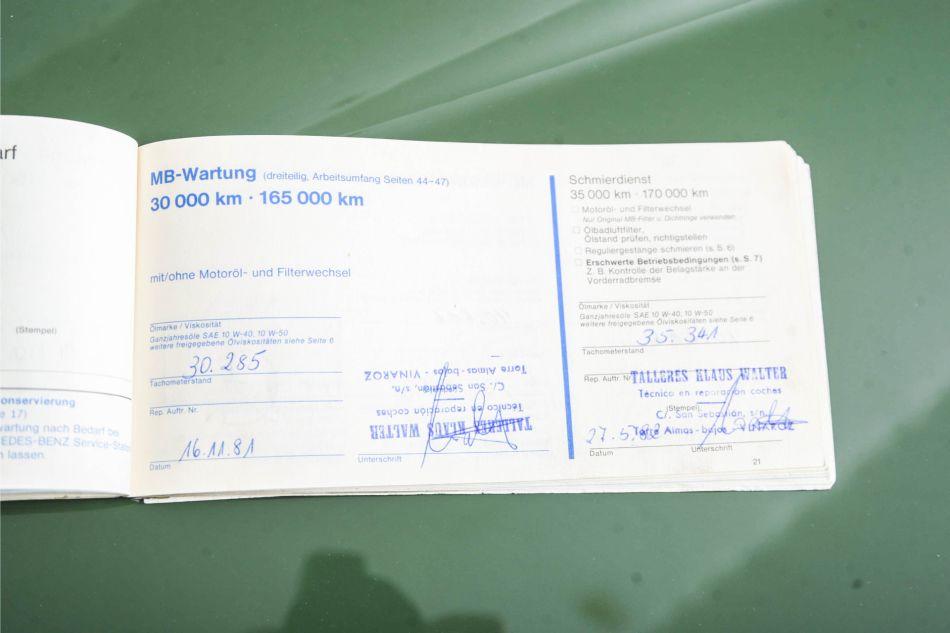 arf
(Stempel)
onservierung
e 17)
artung nach Bedarf bei
EDES-BENZ Service-Stati
n lassen.
MB-Wartung (dreiteilig, Arbeitsumfang Seiten 44-47)
30 000 km · 165 000 km
mit/ohne Motoröl- und Filterwechsel
Ölmarke / Viskosität
Ganzjahresöle SAE 10 W-40, 10 W-50
weitere freigegebene Ölviskositäten siehe Seite 6
30.285
Tachometerstand
Rep. Auftr. Nr.
16.11.81
Datum
TALLERES KLAUS WALTER
Técnico en reparación coches
C/. San Sebastián, s/n.
Torre Almas - bajos - VINAROZ
Unterschrift
Schmierdienst
35 000 km · 170 000 km
□ Motoröl- und Filterwechsel
Nur Original MB-Filter u. Dichtringe verwenden
□ Ölbadluftfilter,
Ölstand prüfen, richtigstellen
□ Reguliergestänge schmieren (s. S. 6)
□ Erschwerte Betriebsbedingungen (s. S. 7)
Z. B. Kontrolle der Belagstärke an der
Vorderradbremse
Ölmarke / Viskosität
Ganzjahresöle SAE 10 W-40, 10 W-50
weitere freigegebene Ölviskositäten siehe Seite 6
35.341
Tachometerstand
Rep. Auftr. Nr.
TALLERES KLAUS WALTER
Técnico en reparación coches
(Stempel)
C/. San Sebastián, s/n.
Torre Almas - bajos - VINAROZ
27.5.82
Datum
Unterschrift
21